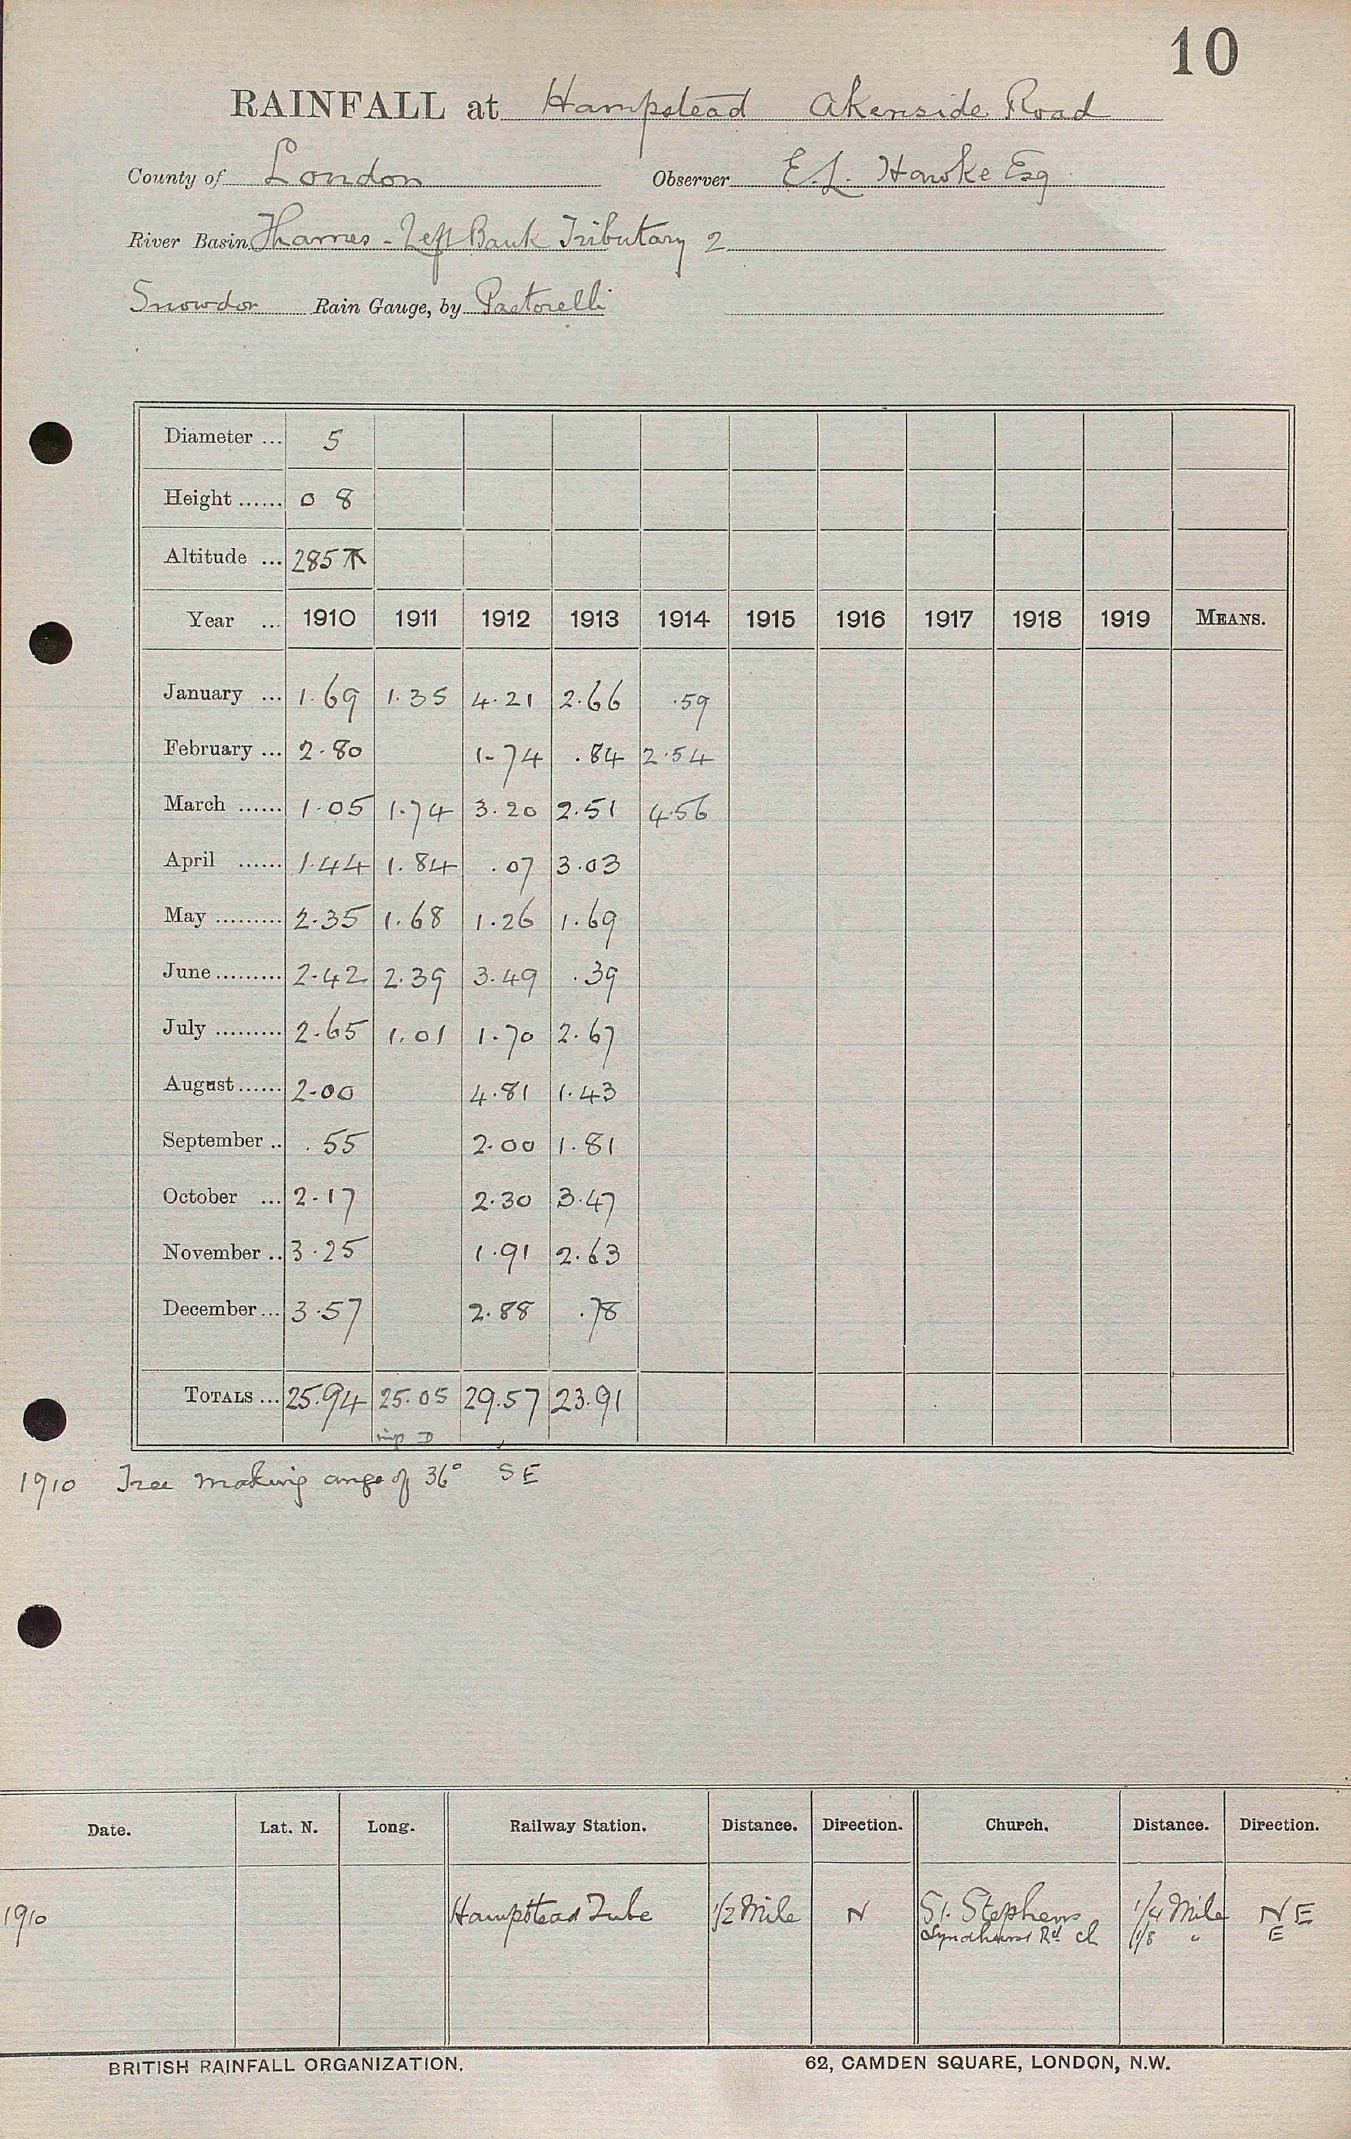 10
RAINFALL at Hampstead Akenside Road
County of London Observer E.L. Hawke Esq
River Basin Thames - Left Bank Tributary 2
Snowdon Rain Gauge, by Pastorelli
Diameter ... 5
Height ...... 0 8
Altitude ... 285
Year ... 1910 1911 1912 1913 1914 1915 1916 1917 1918 1919 MEANS.
January ... 1.69 1.35 4.21 2.66 .59
February ... 2.80 1.74 .84 2.54
March ...... 1.05 1.74 3.20 2.51 4.56
April ...... 1.44 1.84 .07 3.03
May ......... 2.35 1.68 1.26 1.69
June ......... 2.42 2.39 3.49 .39
July ......... 2.65 1.01 1.70 2.67
August ...... 2.00 4.81 1.43
September .. .55 2.00 1.81
October ... 2.17 2.30 3.47
November .. 3.25 1.91 2.63
December ... 3.57 2.88 .78
TOTALS ... 25.94 25.05 29.57 23.91
D
1910 Tree making angle of 36° SE
Date. Lat. N. Long. Railway Station. Distance. Direction. Church. Distance. Direction.
1910 Hampstead Tube 1/2 Mile N St. Stephens 1/4 Mile NE
Lyndhurst Rd Ch 1/8 " E
BRITISH RAINFALL ORGANIZATION. 62, CAMDEN SQUARE, LONDON, N.W.